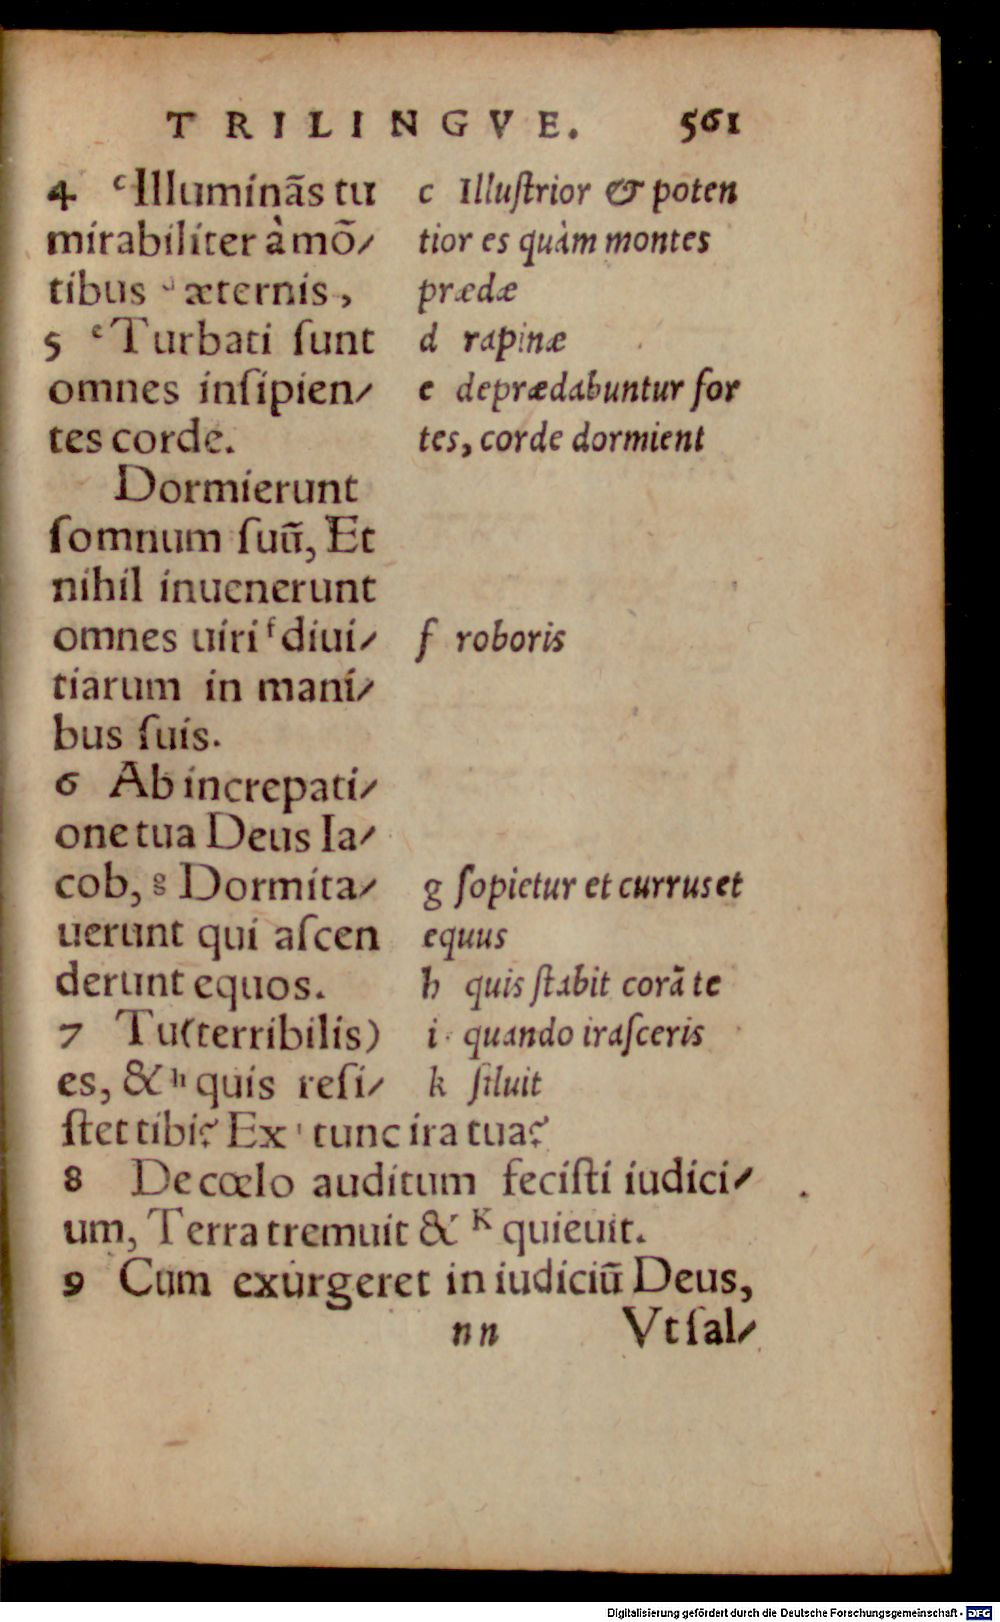 TRILINGVE. 561
4 ᶜIlluminãs tu
mirabiliter à mõ/
tibus ᵈ æternis,
5 ᵉTurbati ſunt
omnes inſipien/
tes corde.
Dormierunt
ſomnum ſuũ, Et
nihil inuenerunt
omnes uiri ᶠdiui/
tiarum in mani/
bus ſuis.
6 Ab increpati/
one tua Deus Ia/
cob, ᵍ Dormita/
uerunt qui aſcen
derunt equos.
7 Tu(terribilis)
es, & ʰ quis reſi/
c Illuſtrior & poten
tior es quàm montes
prædæ
d rapinæ
e deprædabuntur for
tes, corde dormient
f roboris
g ſopietur et currus et
equus
h quis ſtabit corã te
i quando iraſceris
k ſiluit
ſtet tibi? Ex ⁱ tunc ira tua?
8 De cœlo auditum feciſti iudici/
um, Terra tremuit & ᴷ quieuit.
9 Cum exurgeret in iudiciũ Deus,
nn Vt ſal/
Digitalisierung gefördert durch die Deutsche Forschungsgemeinschaft - DFG